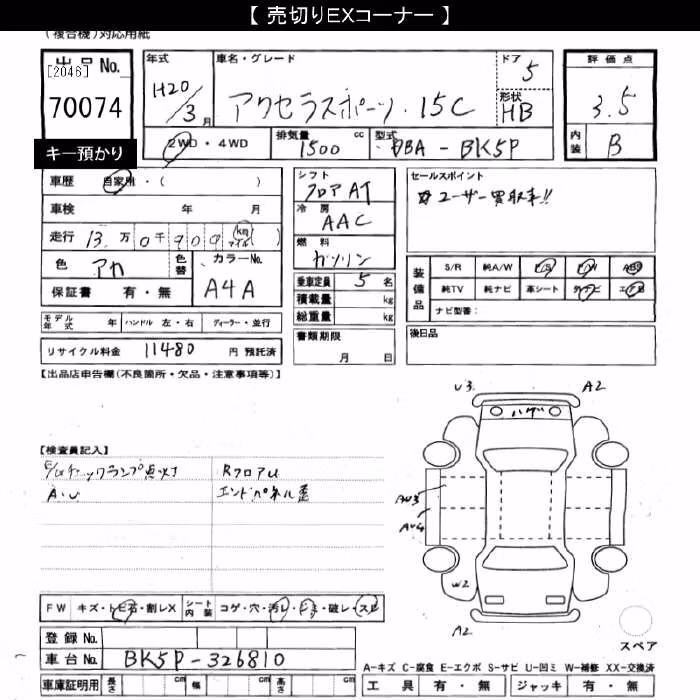 【 売切りEXコーナー 】
(複合機)対応用紙
出品No.
[2046]
70074
キー預かり
年式 H20/3月
車名・グレード アクセラスポーツ・15C
ドア 5
形状 HB
評価点 3.5
内装 B
2WD・4WD
排気量 1500 cc
型式 DBA-BK5P
車歴 自家用・( )
車検 年 月
走行 13万0千900 km マイル ( )
色 アカ
色替
カラーNo. A4A
保証書 有・無
モデル年式 年
ハンドル 左・右
ディーラー・並行
リサイクル料金 11480 円 預託済
シフト フロアAT
冷房 AAC
燃料 ガソリン
乗車定員 5 名
積載量 kg
総重量 kg
書類期限 月 日
セールスポイント
☆ユーザー買取車!!
装備品
S/R 純A/W P/S P/W ABS
純TV 純ナビ 革シート 外ナビ エアB
ナビ型番:
後日品
【出品店申告欄(不良箇所・欠品・注意事項等)】
【検査員記入】
チェックランプ点灯
RフロアU
A・U
エンドパネル歪
FW キズ・トビ石・割レX
シート内装 コゲ・穴・汚レ・シミ・破レ・スレ
登録No.
車台No. BK5P-326810
車庫証明用 長さ cm 幅 cm 高さ cm
U3
A2
ハゲ
AU3
AU4
W2
A2
スペア
A-キズ C-腐食 E-エクボ S-サビ U-凹ミ W-補修 XX-交換済
工具 有・無
ジャッキ 有・無